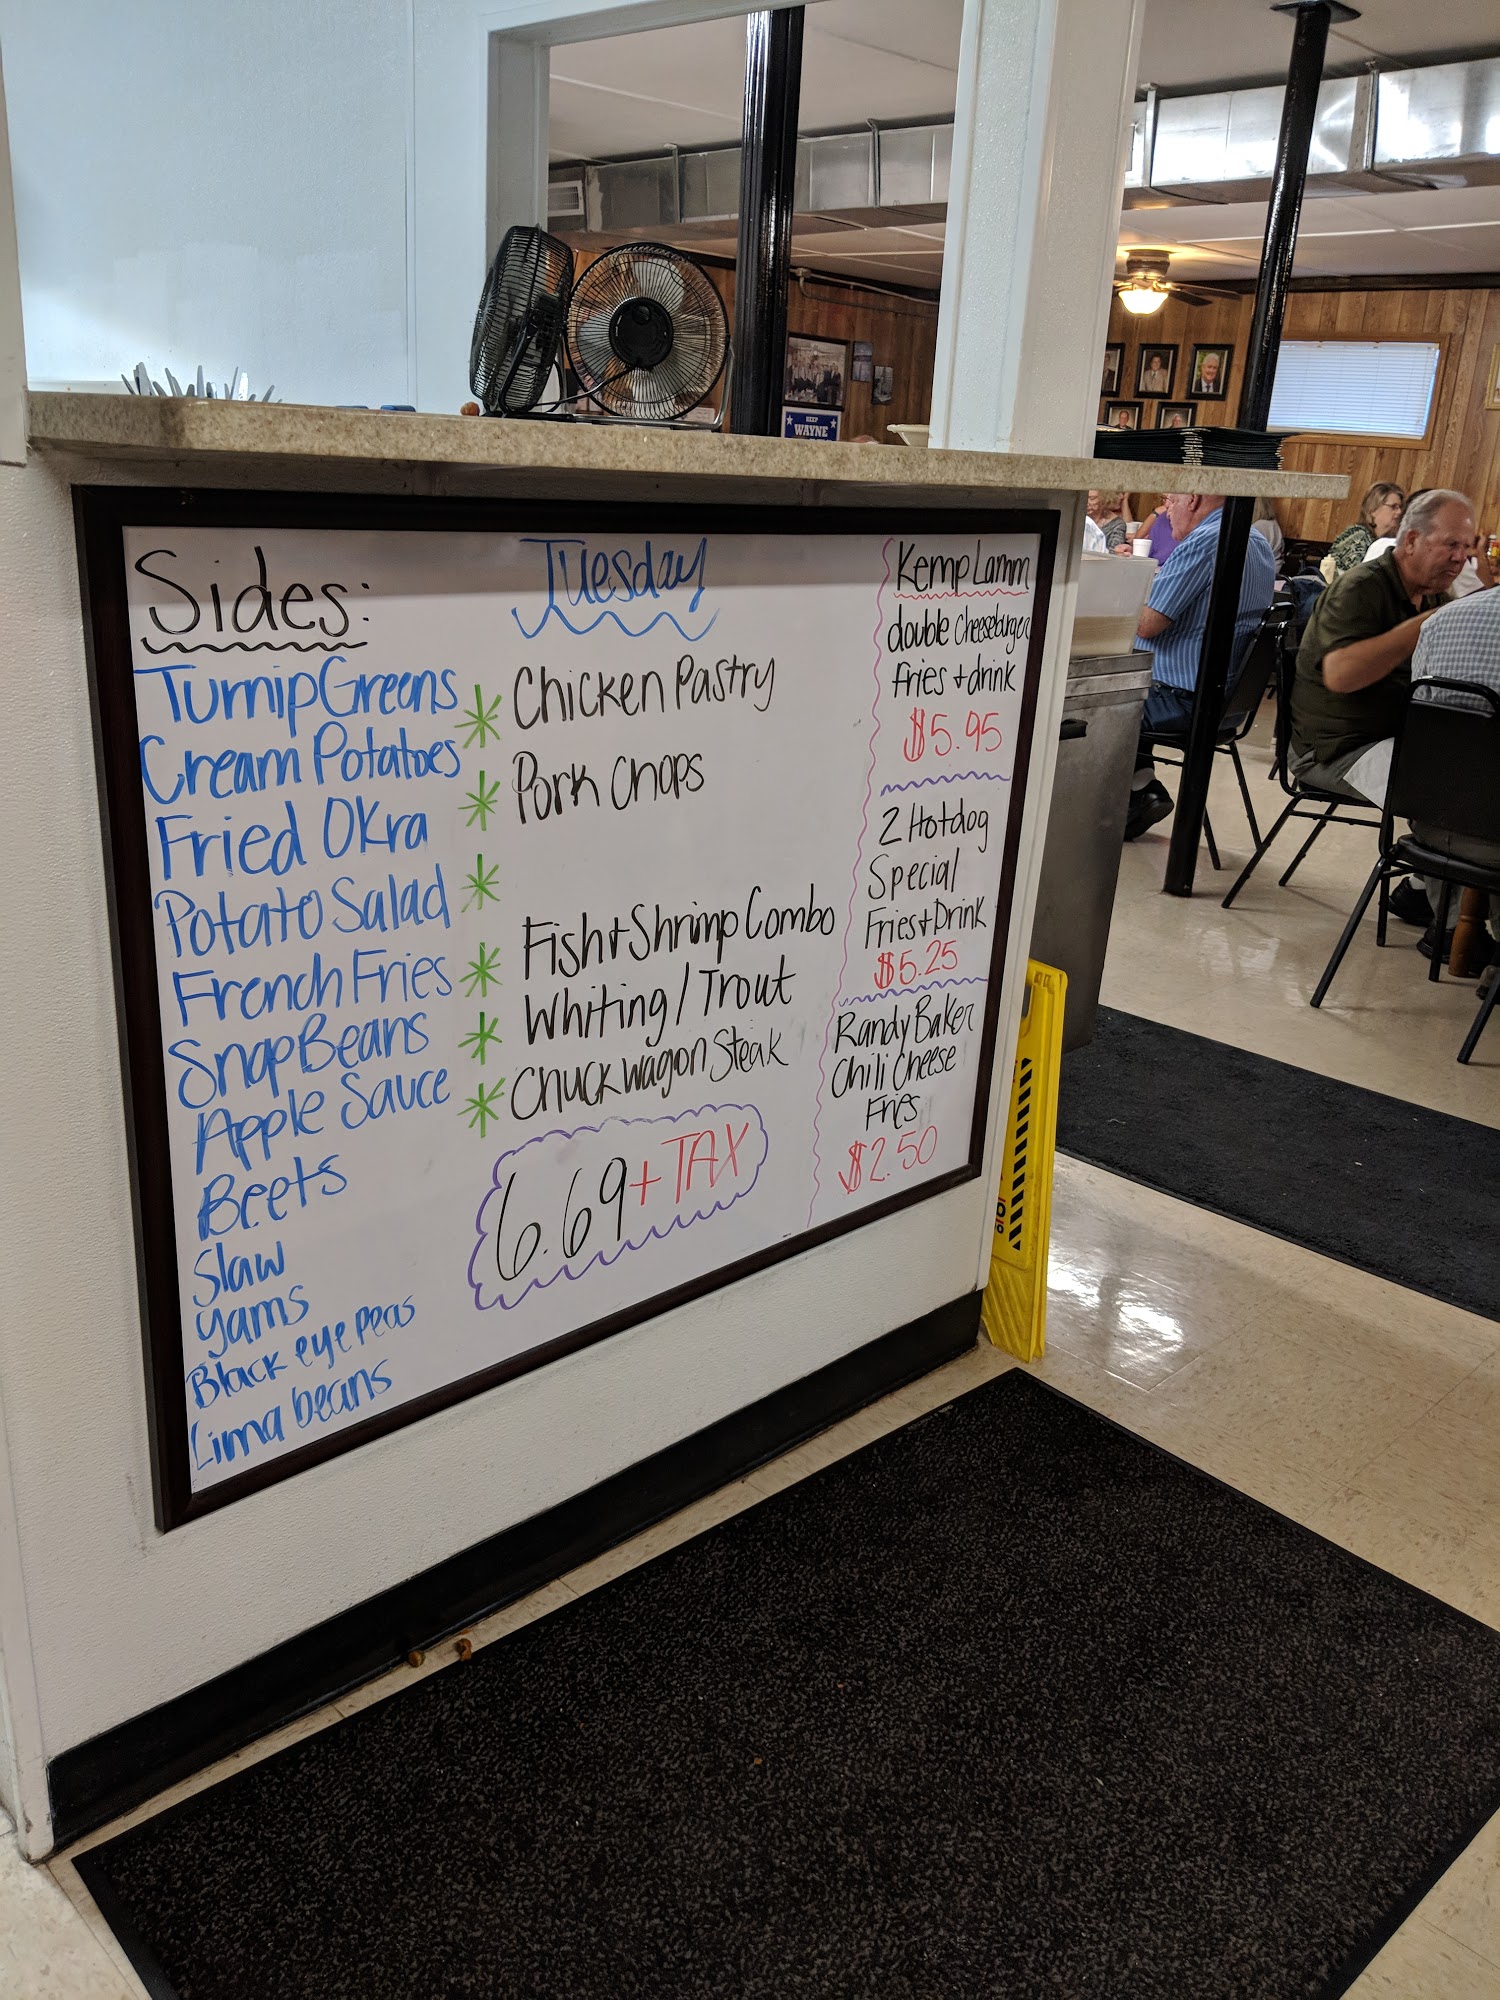 KEEP
WAYNE
Sides:
Turnip Greens
Cream Potatoes
Fried Okra
Potato Salad
French Fries
Snap Beans
Apple Sauce
Beets
Slaw
Yams
Black eye peas
Lima beans
Tuesday
* Chicken Pastry
* Pork Chops
*
* Fish + Shrimp Combo
* Whiting / Trout
* Chuckwagon Steak
6.69 + TAX
Kemp Lamm
double Cheeseburger
fries + drink
$5.95
2 Hotdog
Special
Fries + Drink
$5.25
Randy Baker
Chili Cheese
Fries
$2.50